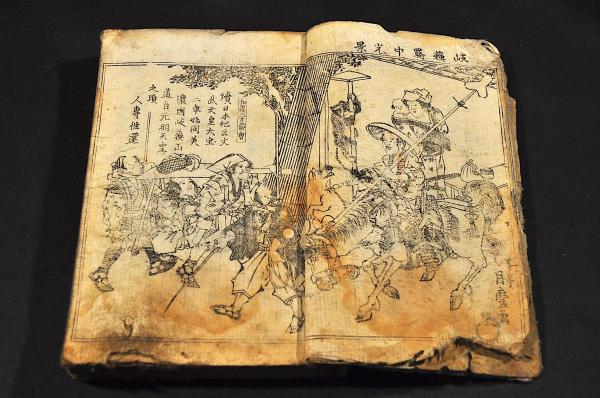 岐蘇中光景
續日本紀云文
武天皇大宝
二年始開美
濃國岐蘇山
道自元明天皇
之頃
人專往還
月麿画